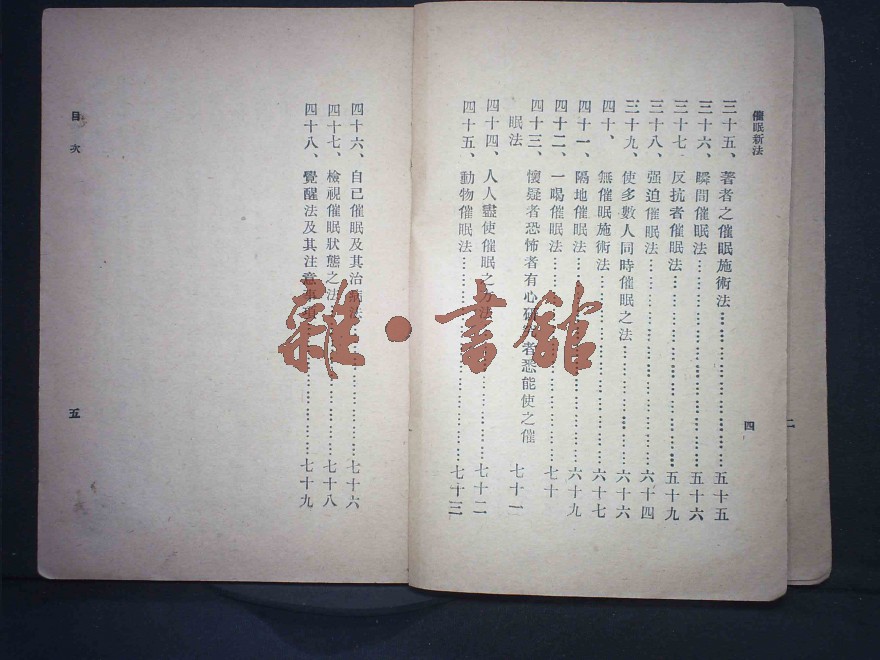 催眠新法
四
三十五、著者之催眠施術法……五十五
三十六、瞬間催眠法……五十六
三十七、反抗者催眠法……五十九
三十八、强迫催眠法……六十四
三十九、使多數人同時催眠之法……六十六
四十、無催眠施術法……六十七
四十一、隔地催眠法……六十九
四十二、一喝催眠法……七十
四十三、懷疑者恐怖者有心研究者悉能使之催
眠法 七十一
四十四、人人盡使催眠之方法……七十二
四十五、動物催眠法……七十三
四十六、自已催眠及其治病法……七十六
四十七、檢視催眠狀態之法……七十八
四十八、覺醒法及其注意事項……七十九
目次
五
雜·書館